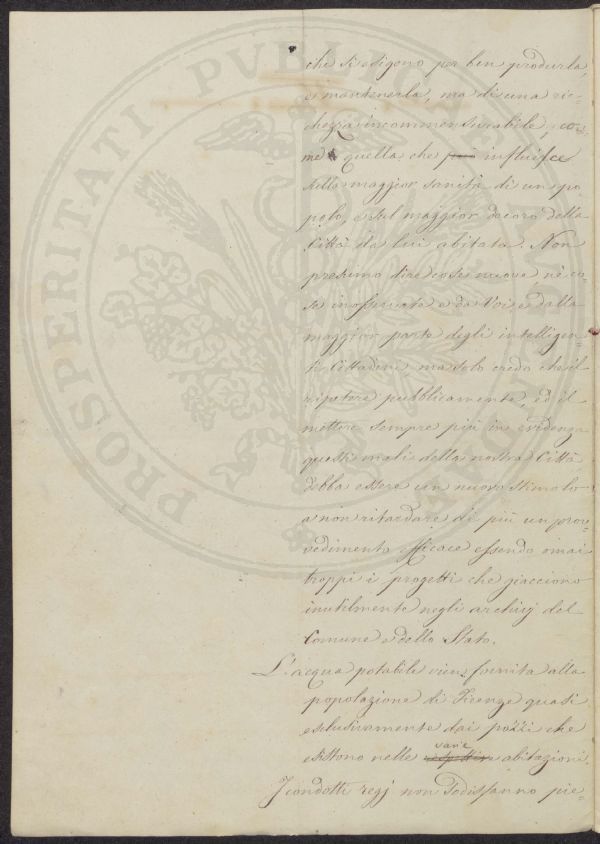 che si esigono per ben produrla,
e mantenerla, ma di una ric-
chezza incommensurabile, co-
me quella che può influisce
sulla maggior sanità di un po-
polo, e sul maggior decoro della
Città da lui abitata. Non
presumo dire cose nuove nè co-
sa inosservata e da Voi e dalla
maggior parte degli intelligen-
ti Cittadini, ma solo credo che il
ripetere pubblicamente, ed il
mettere sempre più in evidenza
questi mali della nostra Città
debba essere un nuovo stimolo
a non ritardare di più un prov-
vedimento efficace essendo omai
troppi i progetti che giacciono
inutilmente negli archivj del
Comune e dello Stato.
L'acqua potabile vien fornita alla
popolazione di Firenze quasi
esclusivamente dai pozzi che
varie
esistono nelle rispettive abitazioni.
I condotti regj non sodisfanno pie-
PROSPERITATI PUBLICAE